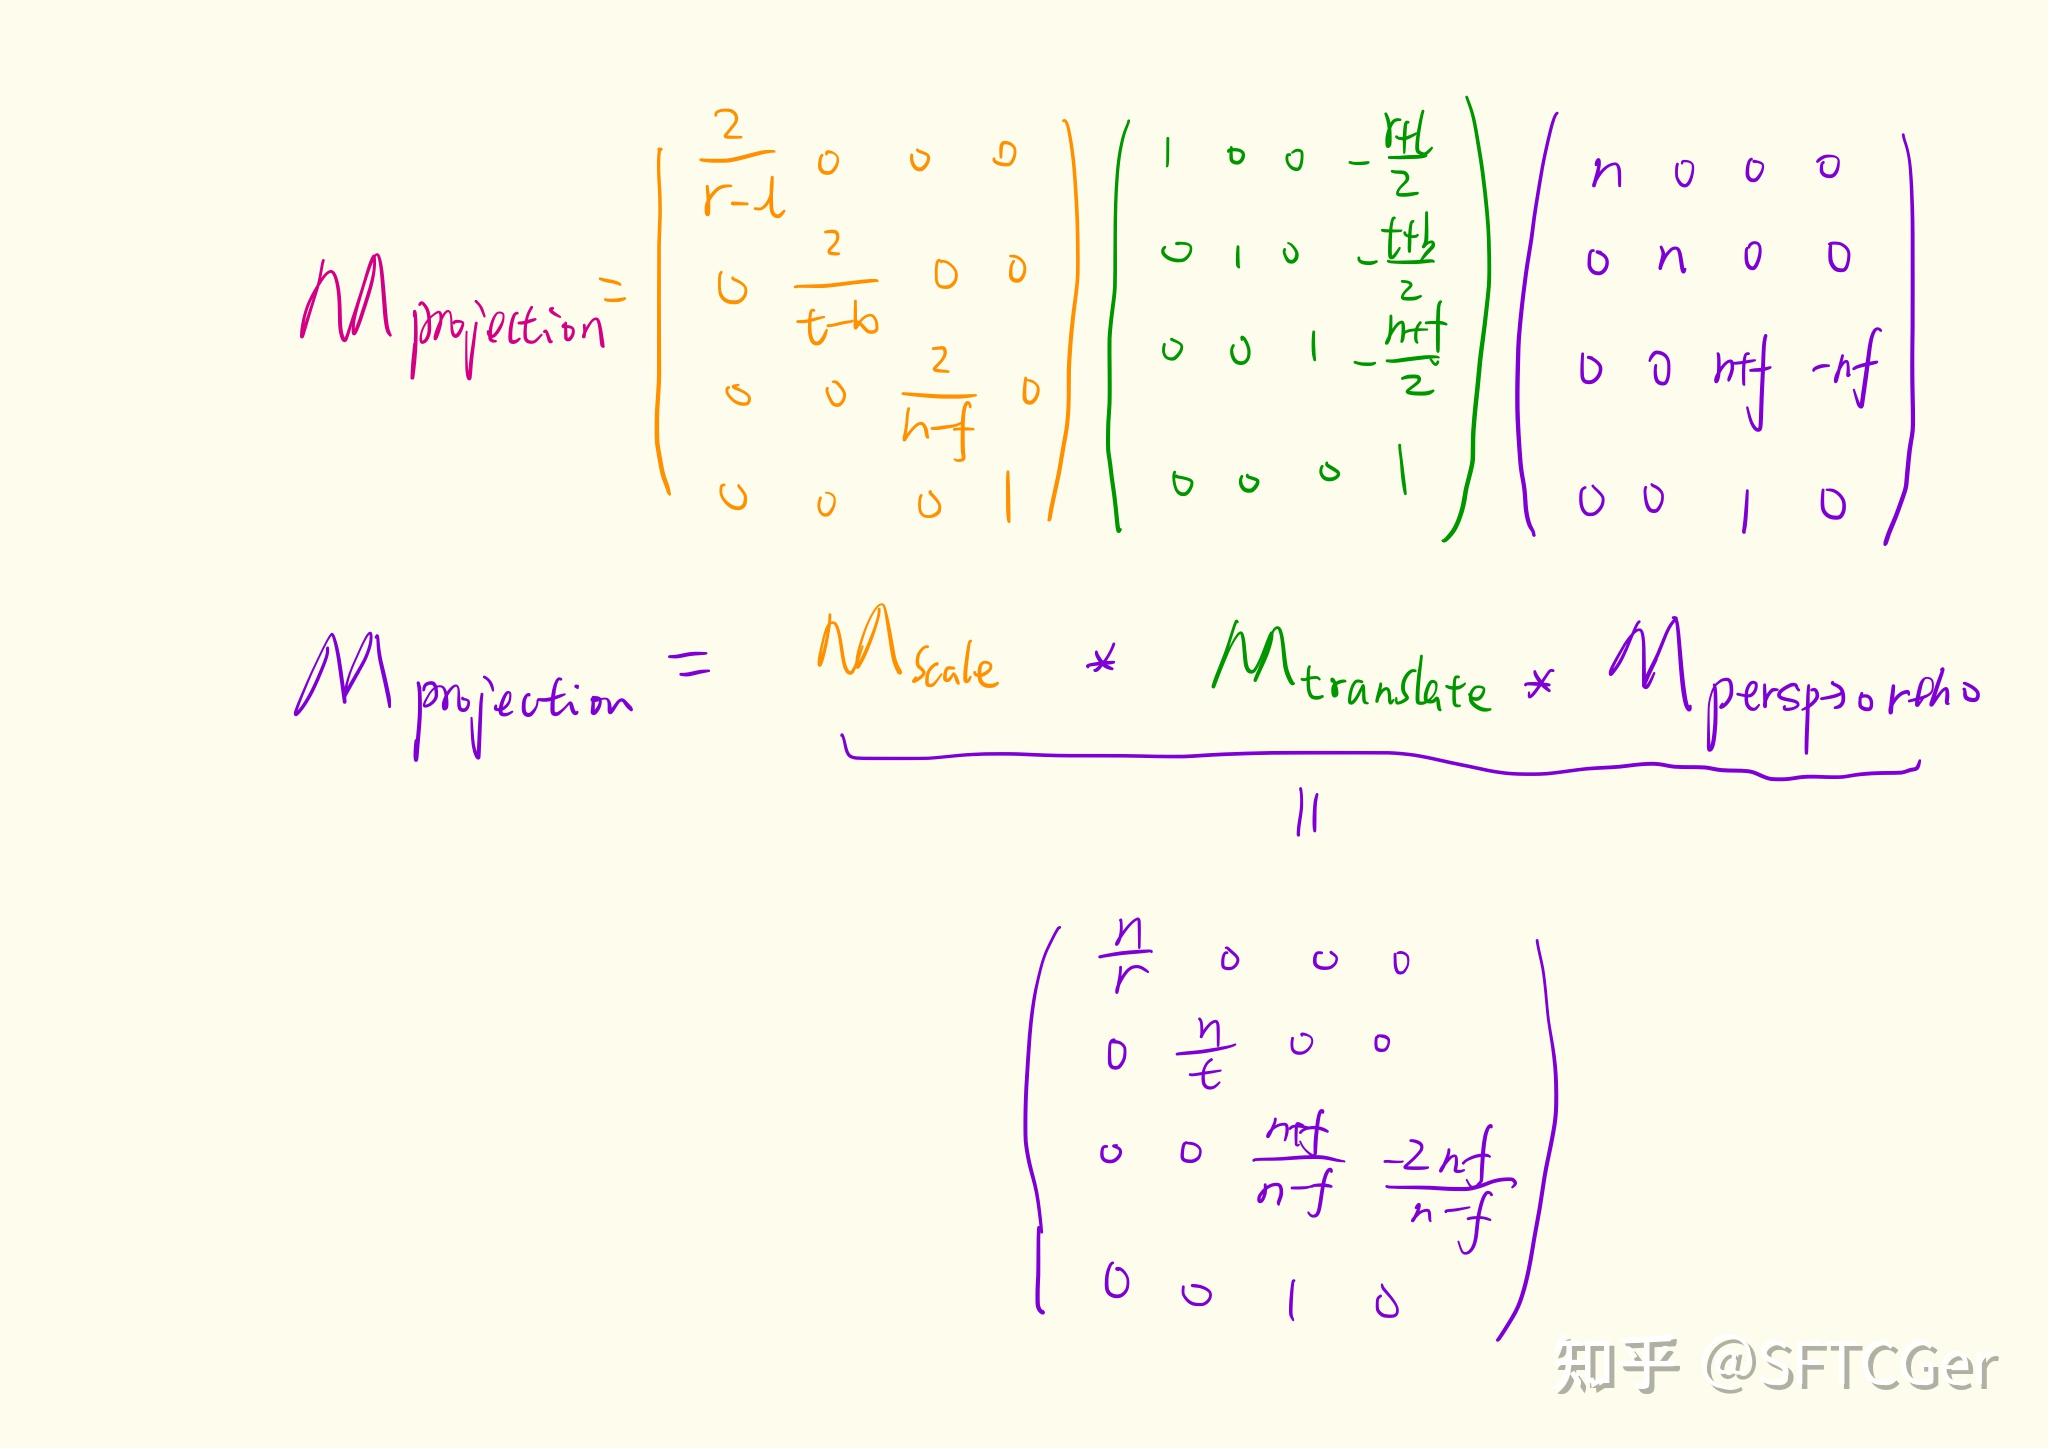 M projection = ( 2/(r-l) 0 0 0 ) ( 1 0 0 -(r+l)/2 ) ( n 0 0 0 )
( 0 2/(t-b) 0 0 ) ( 0 1 0 -(t+b)/2 ) ( 0 n 0 0 )
( 0 0 2/(n-f) 0 ) ( 0 0 1 -(n+f)/2 ) ( 0 0 n+f -nf )
( 0 0 0 1 ) ( 0 0 0 1 ) ( 0 0 1 0 )
M projection = M scale * M translate * M persp→ortho
||
( n/r 0 0 0 )
( 0 n/t 0 0 )
( 0 0 (n+f)/(n-f) -2nf/(n-f) )
( 0 0 1 0 )
知乎 @SFTCGer